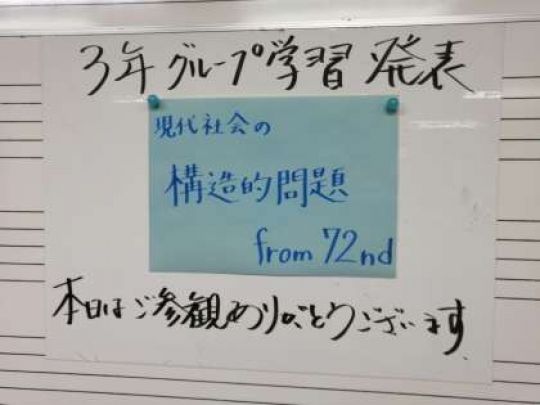 3年グループ学習 発表
現代社会の
構造的問題
from 72nd
本日はご参観ありがとうございます